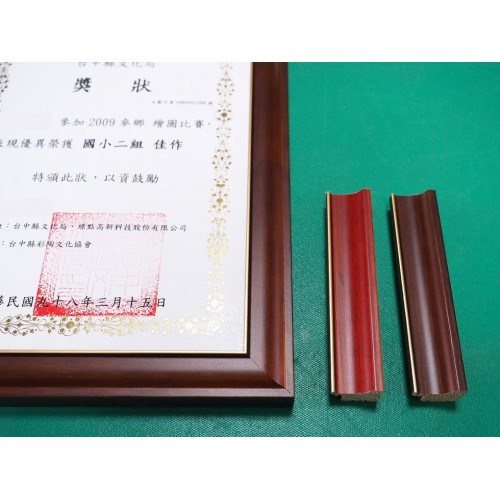 台中縣文化局
獎狀
參加2009參鄉 繪圖比賽,
現優異榮獲 國小二組 佳作
特頒此狀,以資鼓勵
:台中縣文化局、績點高新科技股份有限公司
:台中縣彩陶文化協會
華民國九十八年三月十五日